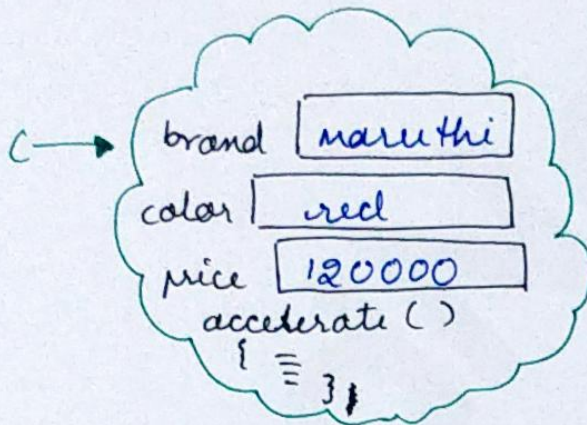 C
brand maruthi
color red
price 120000
accelerate ( )
{
}